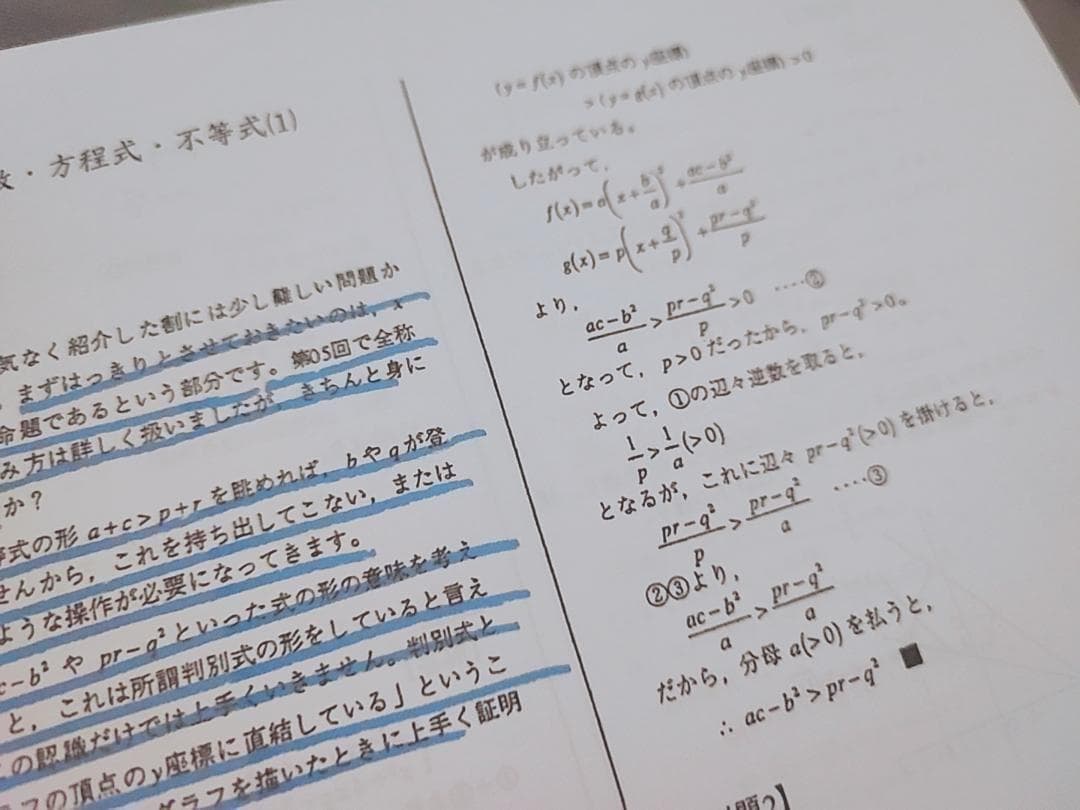 数・方程式・不等式(1)
気なく紹介した割には少し難しい問題か
まずはっきりとさせておきたいのは，x
命題であるという部分です。第05回で全称
み方は詳しく扱いましたが，きちんと身に
か？
等式の形 a+c>p+r を眺めれば，bやqが登
せんから，これを持ち出してこない，または
ような操作が必要になってきます。
c−b²や pr−q²といった式の形の意味を考え
と，これは所謂判別式の形をしていると言え
この認識だけでは上手くいきません。判別式と
フの頂点のy座標に直結している」というこ
グラフを描いたときに上手く証明
(y=f(x) の頂点の y座標)
>(y=g(x) の頂点の y座標)>0
が成り立っている。
したがって，
f(x)=a(x+b/a)²+(ac−b²)/a
g(x)=p(x+q/p)²+(pr−q²)/p
より，
(ac−b²)/a>(pr−q²)/p>0 ……②
となって，p>0だったから，pr−q²>0。
よって，①の辺々逆数を取ると，
1/p>1/a(>0)
となるが，これに辺々 pr−q²(>0) を掛けると，
(pr−q²)/p>(pr−q²)/a ……③
②③より，
(ac−b²)/a>(pr−q²)/a
だから，分母 a(>0) を払うと，
∴ ac−b²>pr−q² ■
題2】